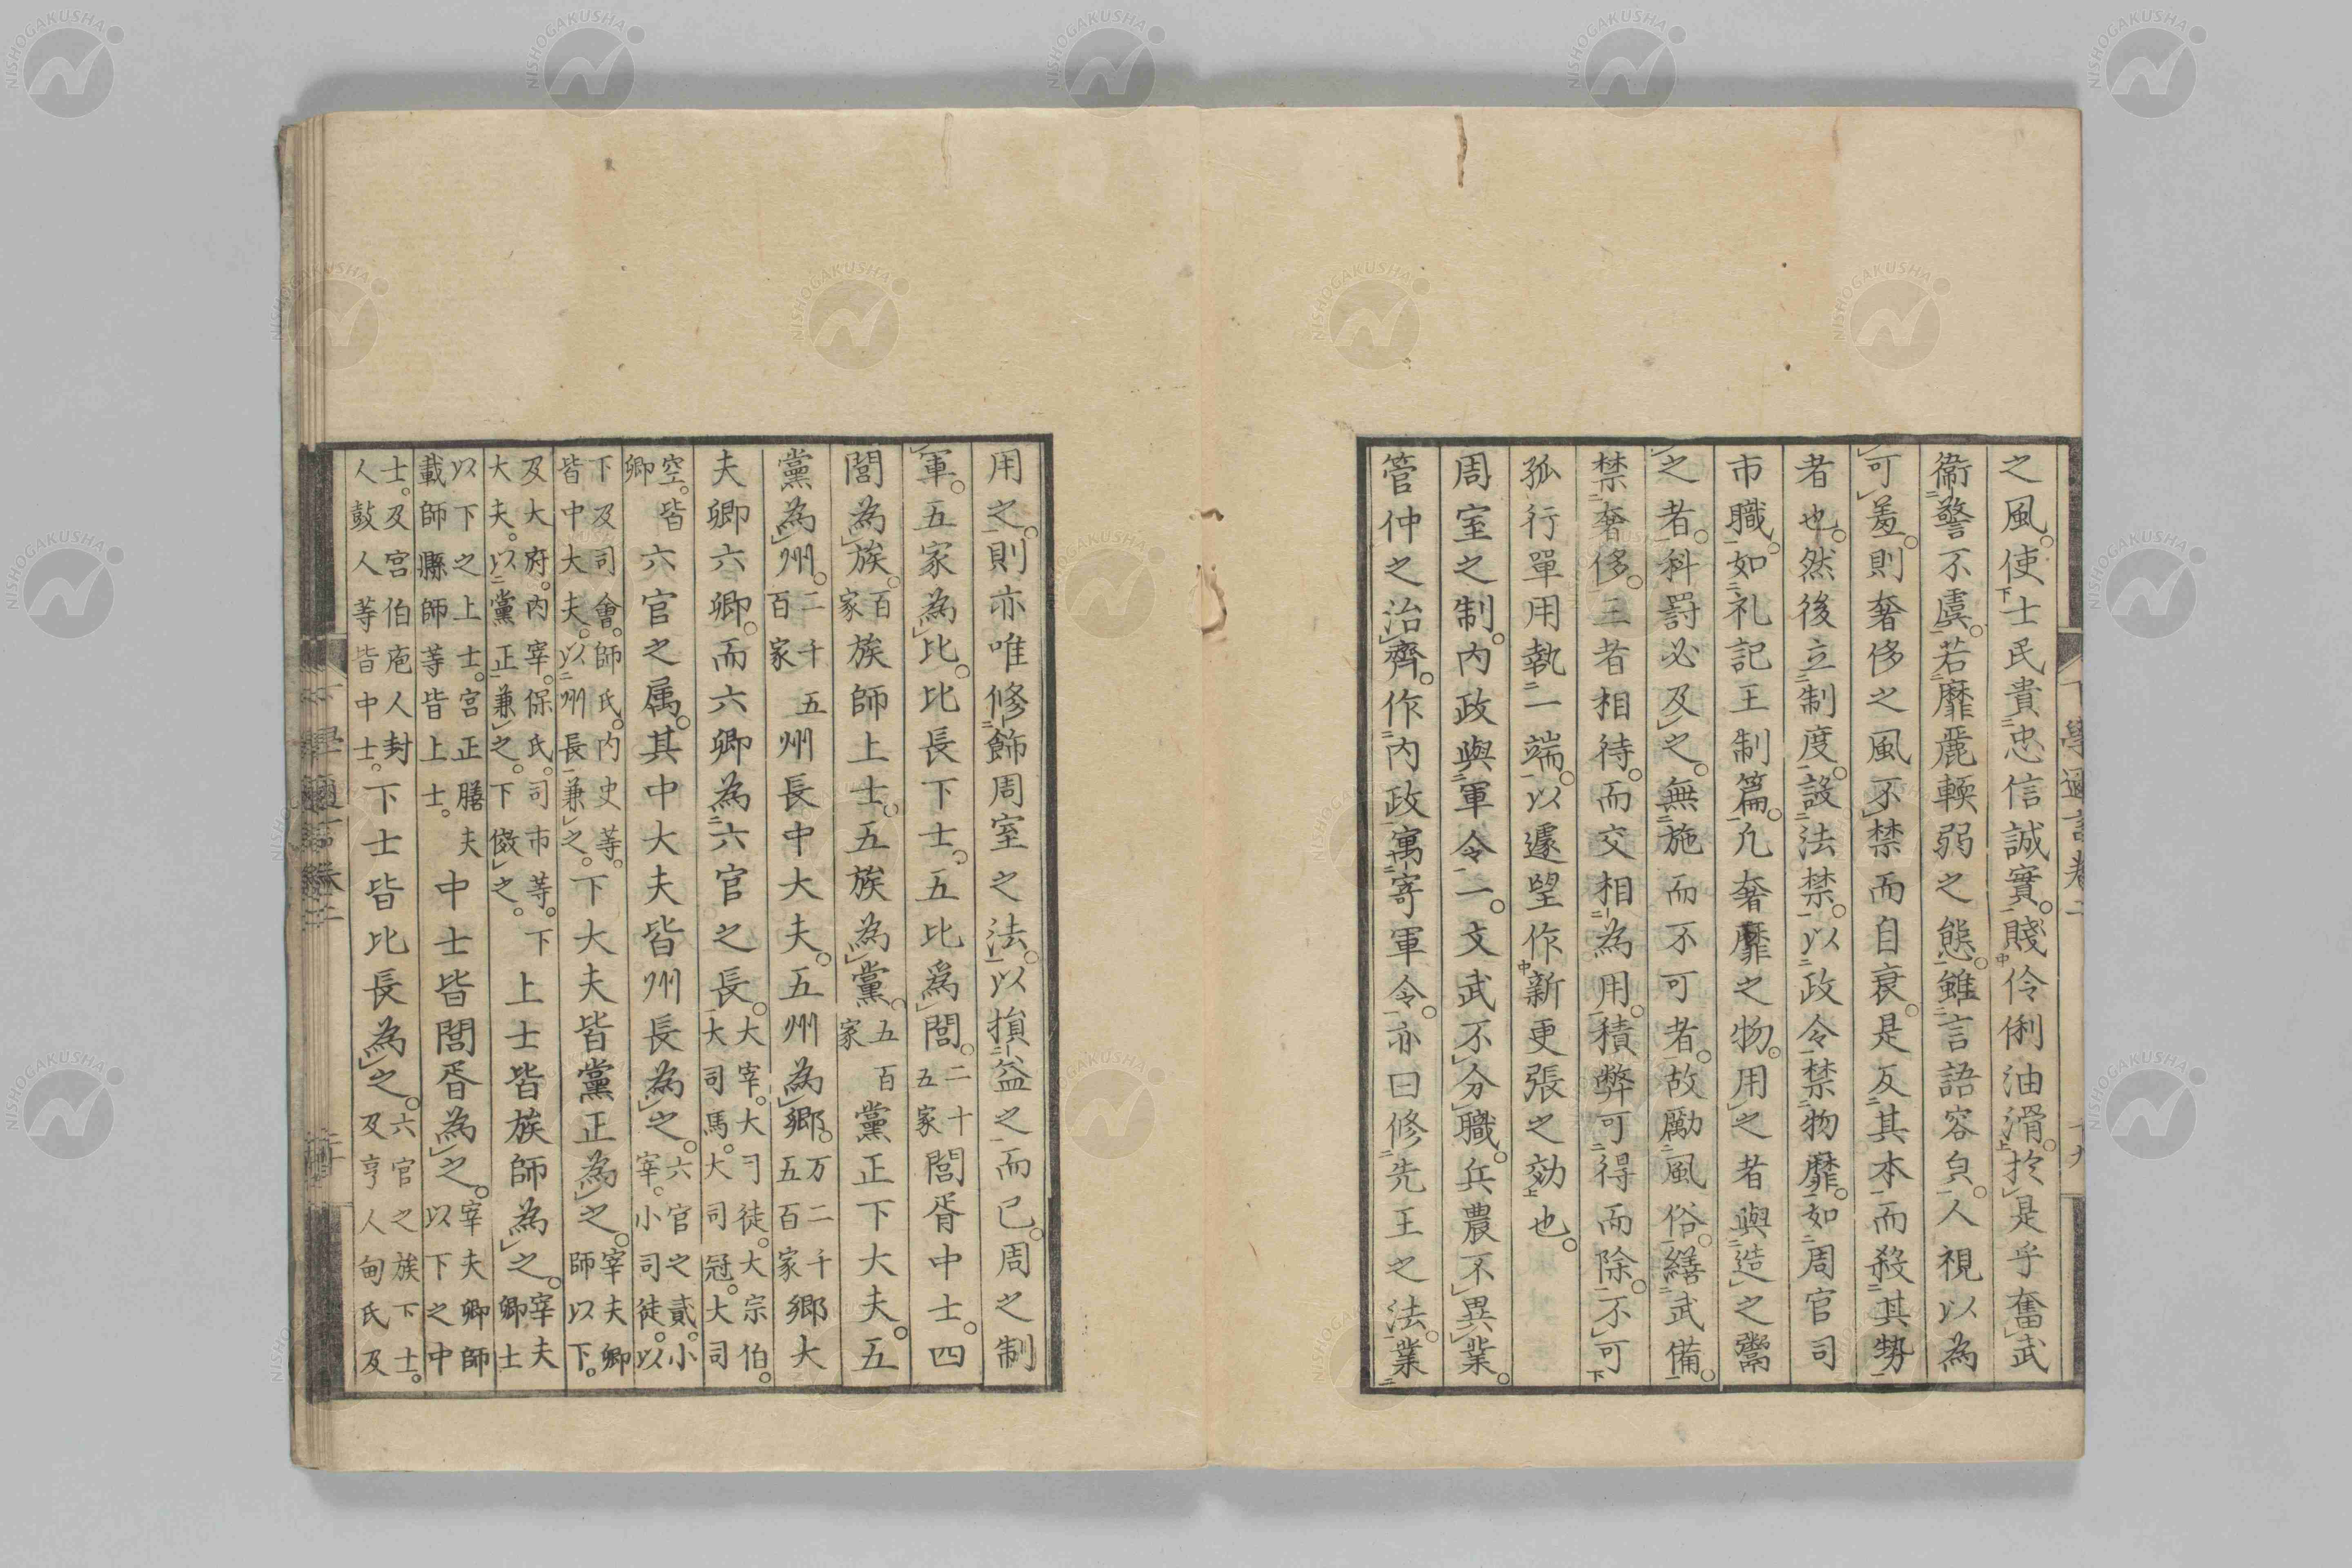 之風。使士民貴忠信誠實。賤伶俐油滑。於是乎奮武
衞警不虞。若靡麗輭弱之態。雖言語容皃。人視以為
可羞。則奢侈之風不禁而自衰。是反其本而殺其勢
者也。然後立制度。設法禁。以政令禁物靡。如周官司
市職。如礼記王制篇。凢奢靡之物。用之者與造之鬻
之者。科罰必及之。無施而不可者。故勵風俗。繕武備。
禁奢侈。三者相待。而交相為用。積弊可得而除。不可
孤行單用執一端。以遽望作新更張之効也。
周室之制。內政與軍令一。文武不分職。兵農不異業。
管仲之治齊。作內政寓寄軍令。亦曰修先王之法。業
用之。則亦唯修飾周室之法。以損益之而已。周之制
軍。五家為比。比長下士。五比爲閭。二十五家閭胥中士。四
閭為族。百家族師上士。五族為黨。五百家黨正下大夫。五
黨為州。二千五百家州長中大夫。五州為鄉。万二千五百家鄉大
夫卿六卿。而六卿為六官之長。大宰。大司徒。大宗伯。大司馬。大司冠。大司
空。皆卿六官之属。其中大夫皆州長為之。六官之貳。小宰。小司徒。以
下及司會。師氏。內史等。皆中大夫。以州長兼之。下大夫皆黨正為之。宰夫卿師以下。
及大府。內宰。保氏。司市等。下大夫。以黨正兼之。下倣之。上士皆族師為之。宰夫卿士
以下之上士。宮正膳夫載師縣師等皆上士。中士皆閭胥為之。宰夫卿師以下之中
士。及宮伯庖人封人鼓人等皆中士。下士皆比長為之。六官之族下士。及亨人甸氏及
下學邇言卷二
十九